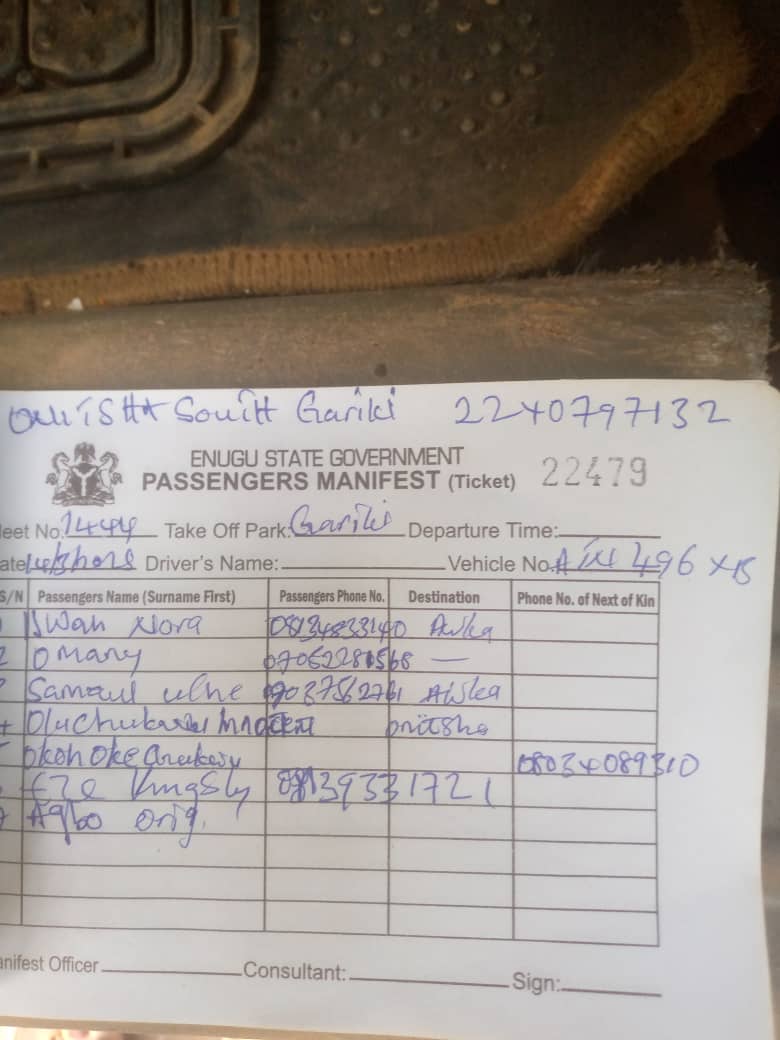 South Gariki 2240797132
ENUGU STATE GOVERNMENT
PASSENGERS MANIFEST (Ticket) 22479
eet No. 1444 Take Off Park: Gariki Departure Time:
ate Driver's Name: Vehicle No. 496 XB
S/N Passengers Name (Surname First) Passengers Phone No. Destination Phone No. of Next of Kin
Nora 08134833140 Awka
2 O many 07052281568 —
Samaul uche Awka
onitsha
Okoh Oke 08034089310
Eze Kingsly 08139331721
Agbo orig.
anifest Officer Consultant: Sign: